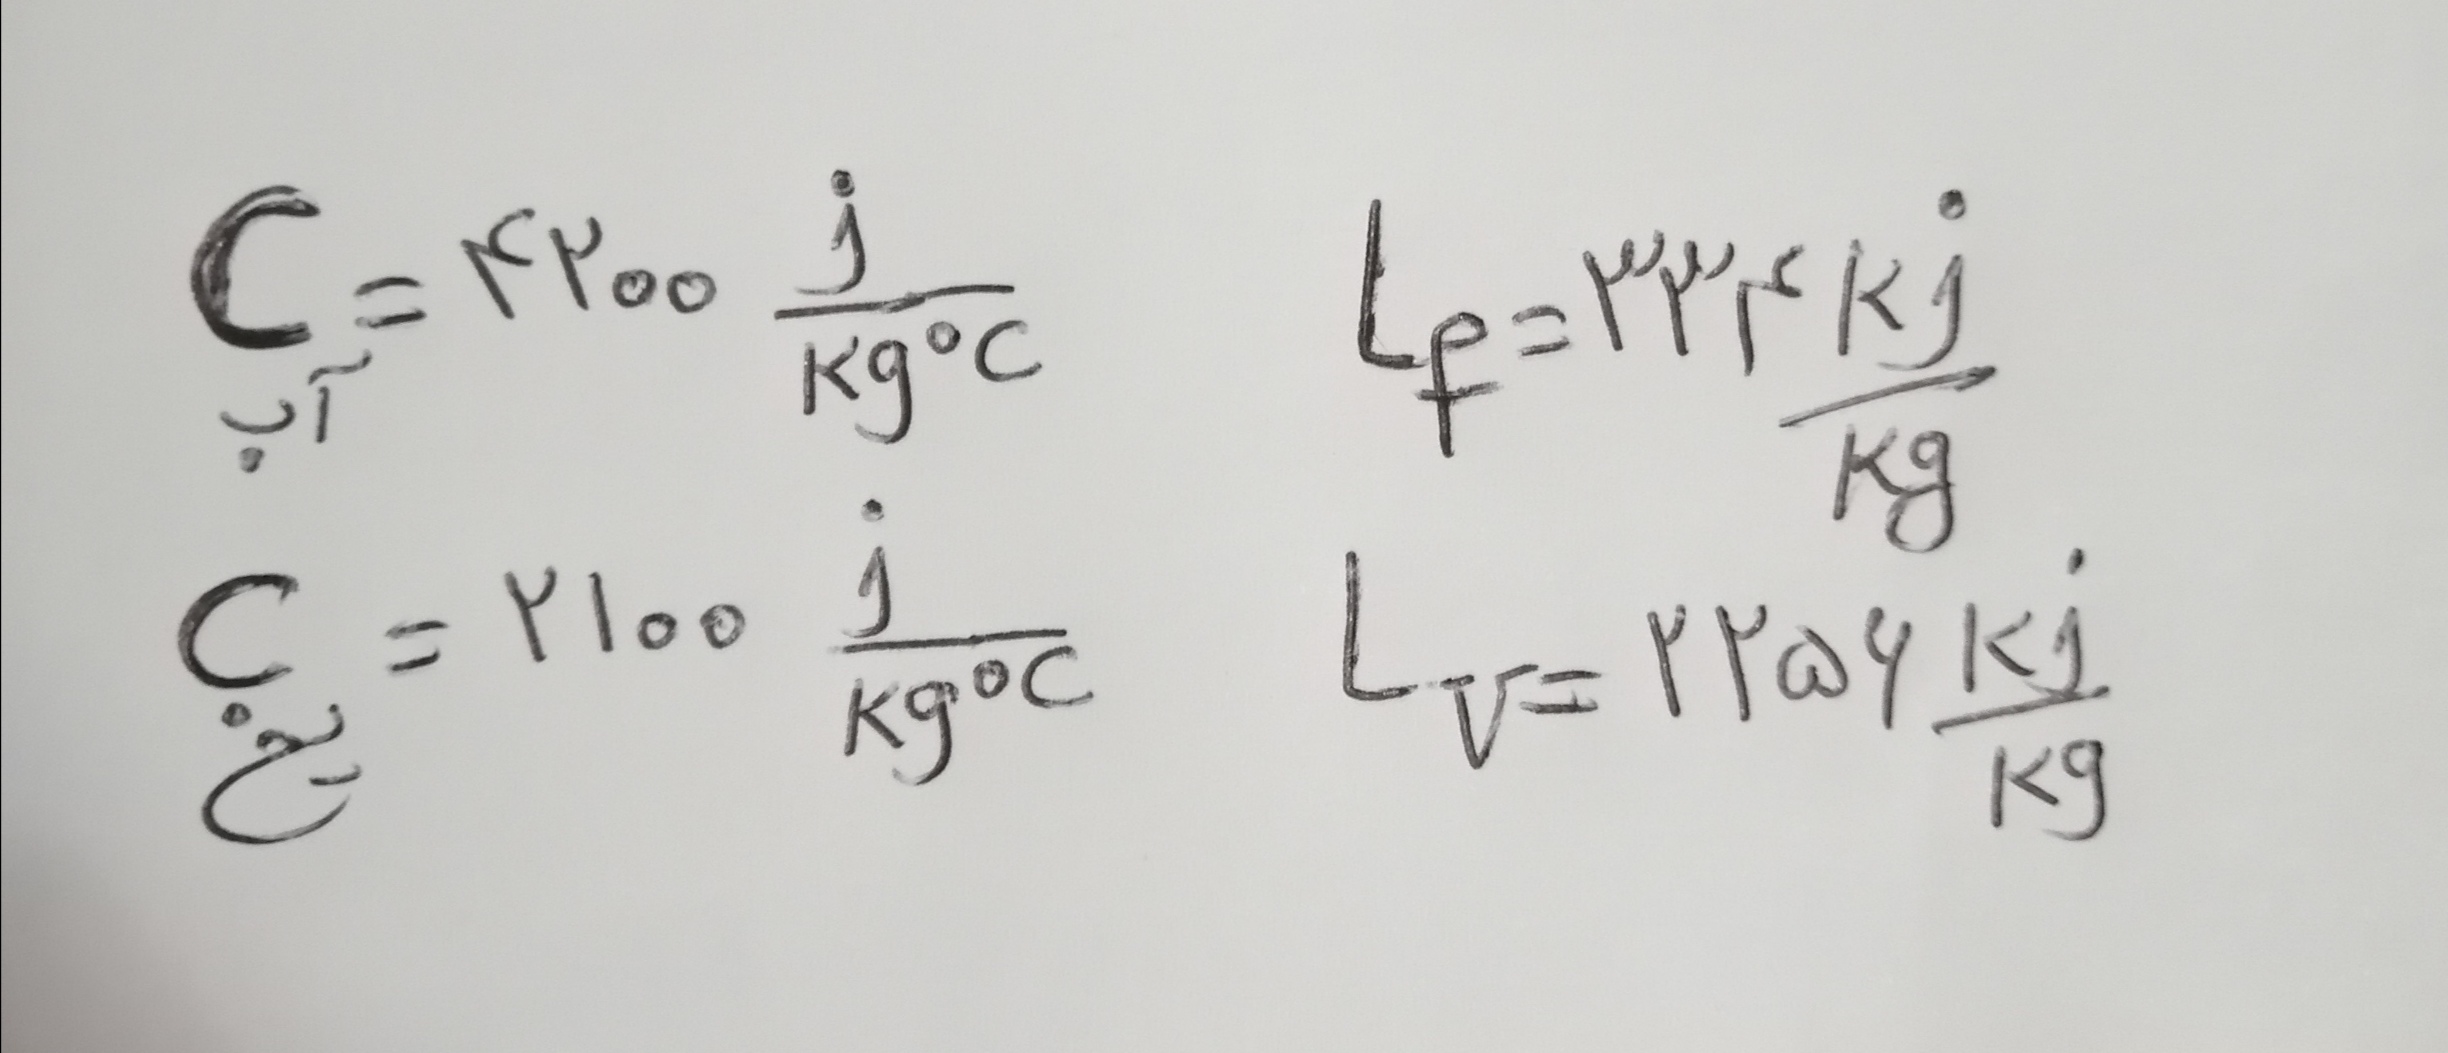 C آب = ۴۲۰۰ j/kg°C
L_f = ۳۳۴ kj/kg
C یخ = ۲۱۰۰ j/kg°C
L_v = ۲۲۵۶ kj/kg